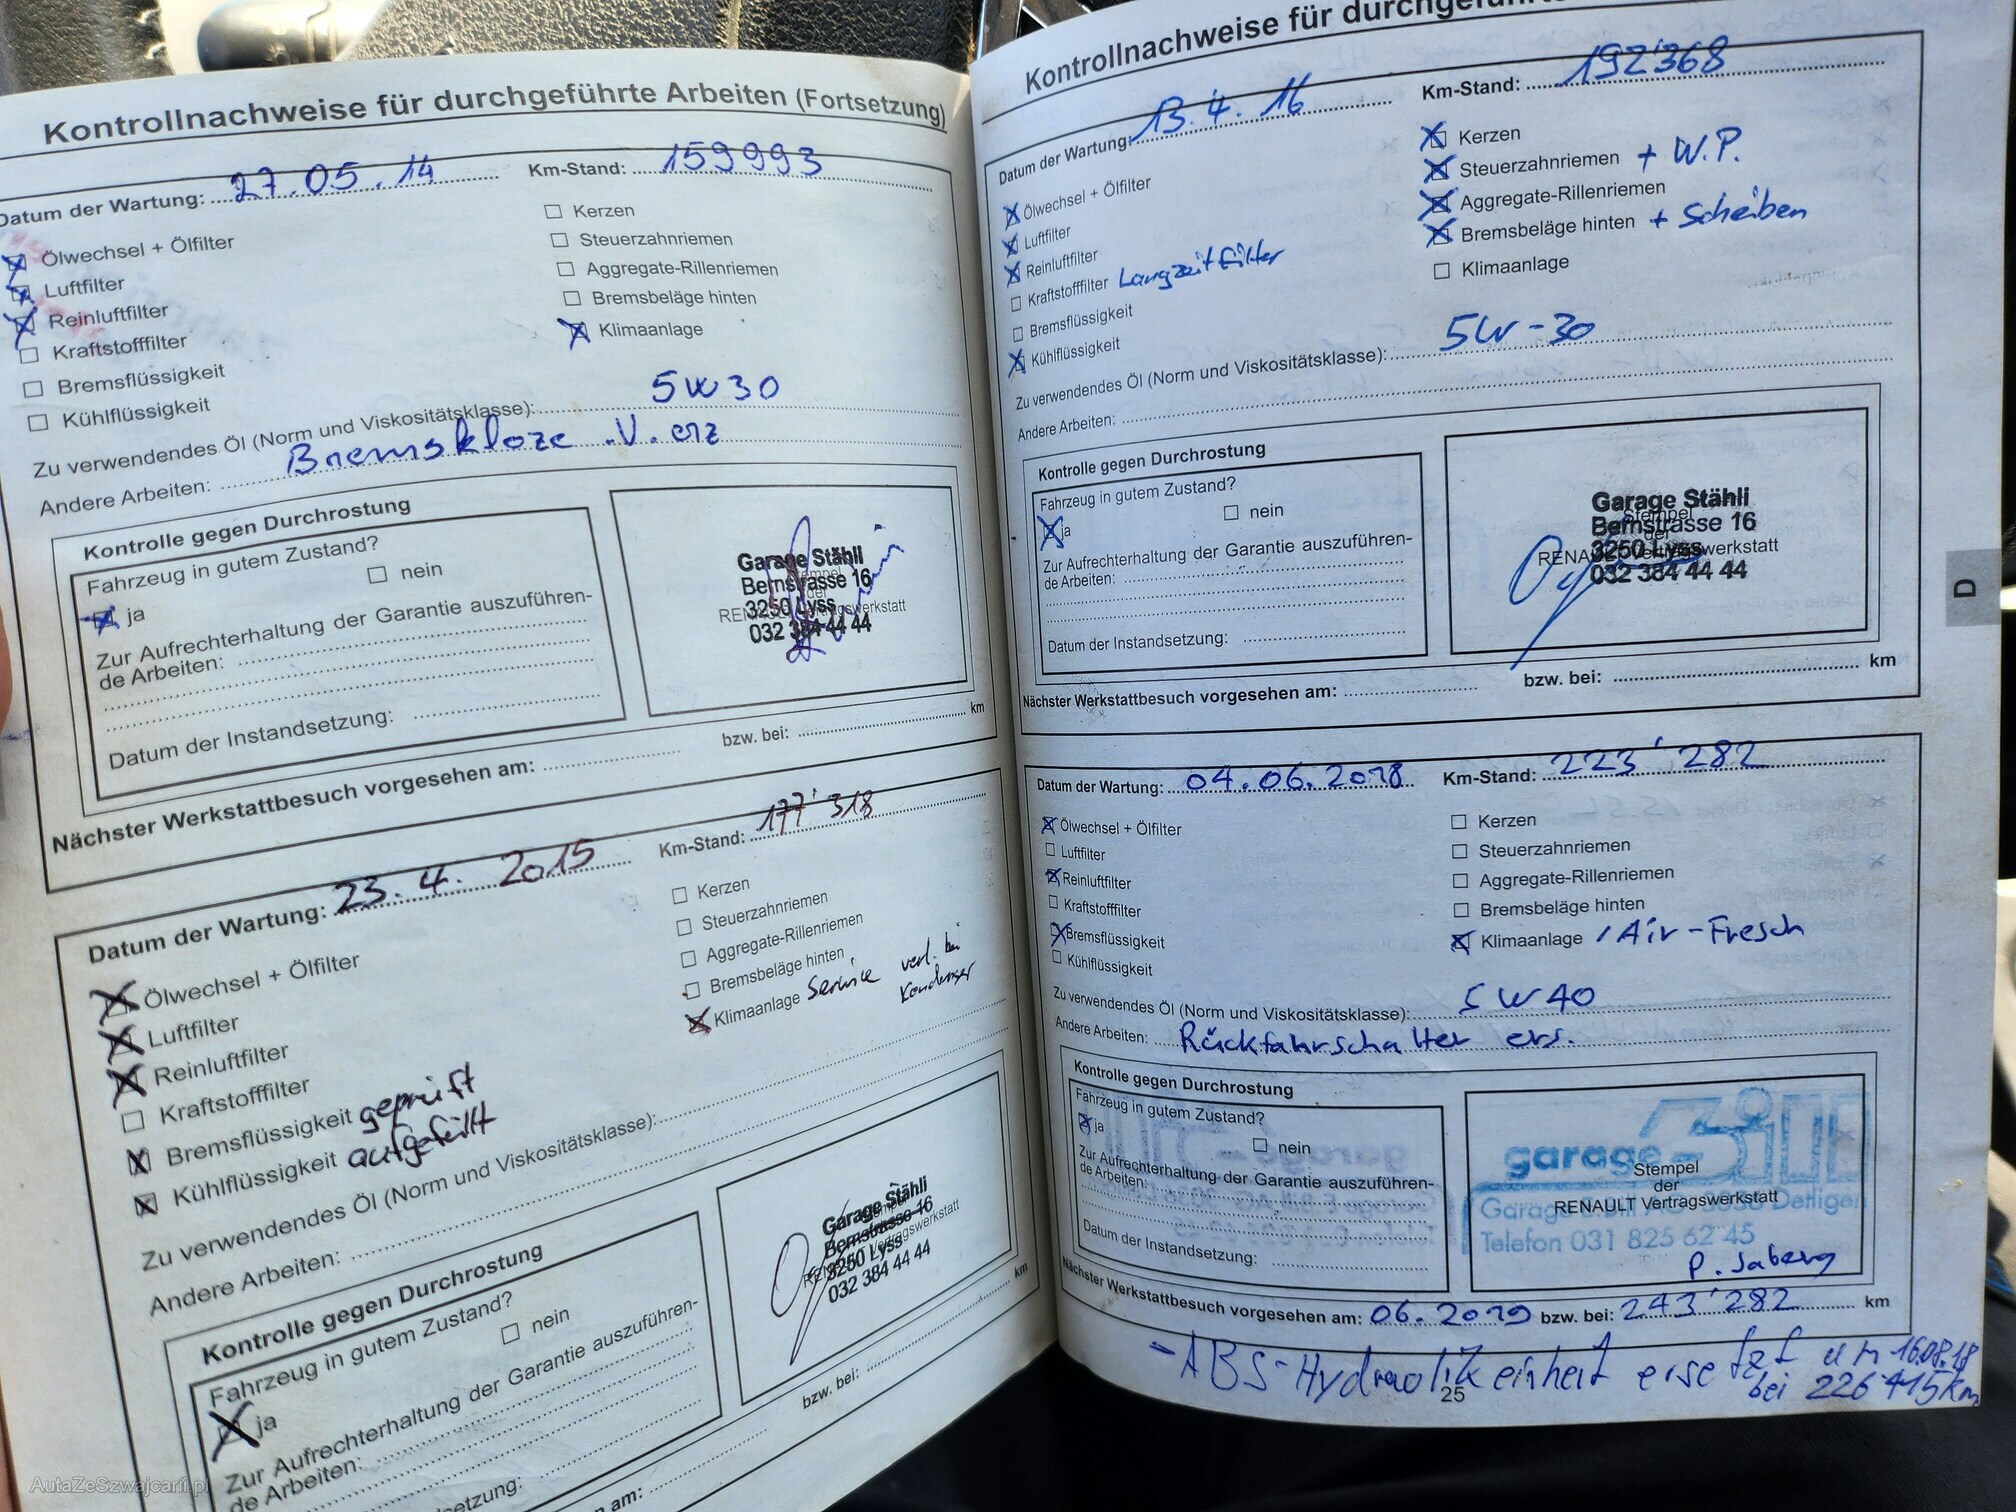 Kontrollnachweise für durchgeführte Arbeiten (Fortsetzung)
Datum der Wartung: 27.05.14 Km-Stand: 159993
Ölwechsel + Ölfilter
Luftfilter
Reinluftfilter
Kraftstofffilter
Bremsflüssigkeit
Kühlflüssigkeit
Kerzen
Steuerzahnriemen
Aggregate-Rillenriemen
Bremsbeläge hinten
Klimaanlage
Zu verwendendes Öl (Norm und Viskositätsklasse): 5W30
Andere Arbeiten: Bremskloze .V. erz
Kontrolle gegen Durchrostung
Fahrzeug in gutem Zustand?
ja nein
Zur Aufrechterhaltung der Garantie auszuführen-
de Arbeiten:
Datum der Instandsetzung:
Garage Stähli
Bernstrasse 16
3250 Lyss
032 384 44 44
Nächster Werkstattbesuch vorgesehen am: bzw. bei: km
Datum der Wartung: 23.4.2015 Km-Stand: 177'318
Ölwechsel + Ölfilter
Luftfilter
Reinluftfilter
Kraftstofffilter
Bremsflüssigkeit geprüft
Kühlflüssigkeit aufgefüllt
Kerzen
Steuerzahnriemen
Aggregate-Rillenriemen
Bremsbeläge hinten
Klimaanlage Service verl. bei
Zu verwendendes Öl (Norm und Viskositätsklasse):
Andere Arbeiten:
Kontrolle gegen Durchrostung
Fahrzeug in gutem Zustand?
ja nein
Zur Aufrechterhaltung der Garantie auszuführen-
de Arbeiten:
Garage Stähli
Bernstrasse 16
3250 Lyss
032 384 44 44
bzw. bei: km
setzung:
n am:
Kontrollnachweise für durchgeführte
Datum der Wartung: 13.4.16 Km-Stand: 192'368
Ölwechsel + Ölfilter
Luftfilter
Reinluftfilter
Kraftstofffilter Langzeitfilter
Bremsflüssigkeit
Kühlflüssigkeit
Kerzen
Steuerzahnriemen + W.P.
Aggregate-Rillenriemen
Bremsbeläge hinten + Scheiben
Klimaanlage
Zu verwendendes Öl (Norm und Viskositätsklasse): 5W-30
Andere Arbeiten:
Kontrolle gegen Durchrostung
Fahrzeug in gutem Zustand?
ja nein
Zur Aufrechterhaltung der Garantie auszuführen-
de Arbeiten:
Datum der Instandsetzung:
Garage Stähli
Bernstrasse 16
3250 Lyss
032 384 44 44
Nächster Werkstattbesuch vorgesehen am: bzw. bei: km
D
Datum der Wartung: 04.06.2018 Km-Stand: 223'282
Ölwechsel + Ölfilter
Luftfilter
Reinluftfilter
Kraftstofffilter
Bremsflüssigkeit
Kühlflüssigkeit
Kerzen
Steuerzahnriemen
Aggregate-Rillenriemen
Bremsbeläge hinten
Klimaanlage / Air-Fresch
Zu verwendendes Öl (Norm und Viskositätsklasse): 5W40
Andere Arbeiten: Rückfahrschalter ers.
Kontrolle gegen Durchrostung
Fahrzeug in gutem Zustand?
ja nein
Zur Aufrechterhaltung der Garantie auszuführen-
de Arbeiten:
Datum der Instandsetzung:
garage Bill
Stempel
der
RENAULT Vertragswerkstatt
Garage E. Bill AG 3036 Detligen
Telefon 031 825 62 45
Nächster Werkstattbesuch vorgesehen am: 06.2019 bzw. bei: 243'282 km
- ABS-Hydraolikeinheit ersetzt am 16.08.18
bei 226415km
25
AutaZeSzwajcarii.pl